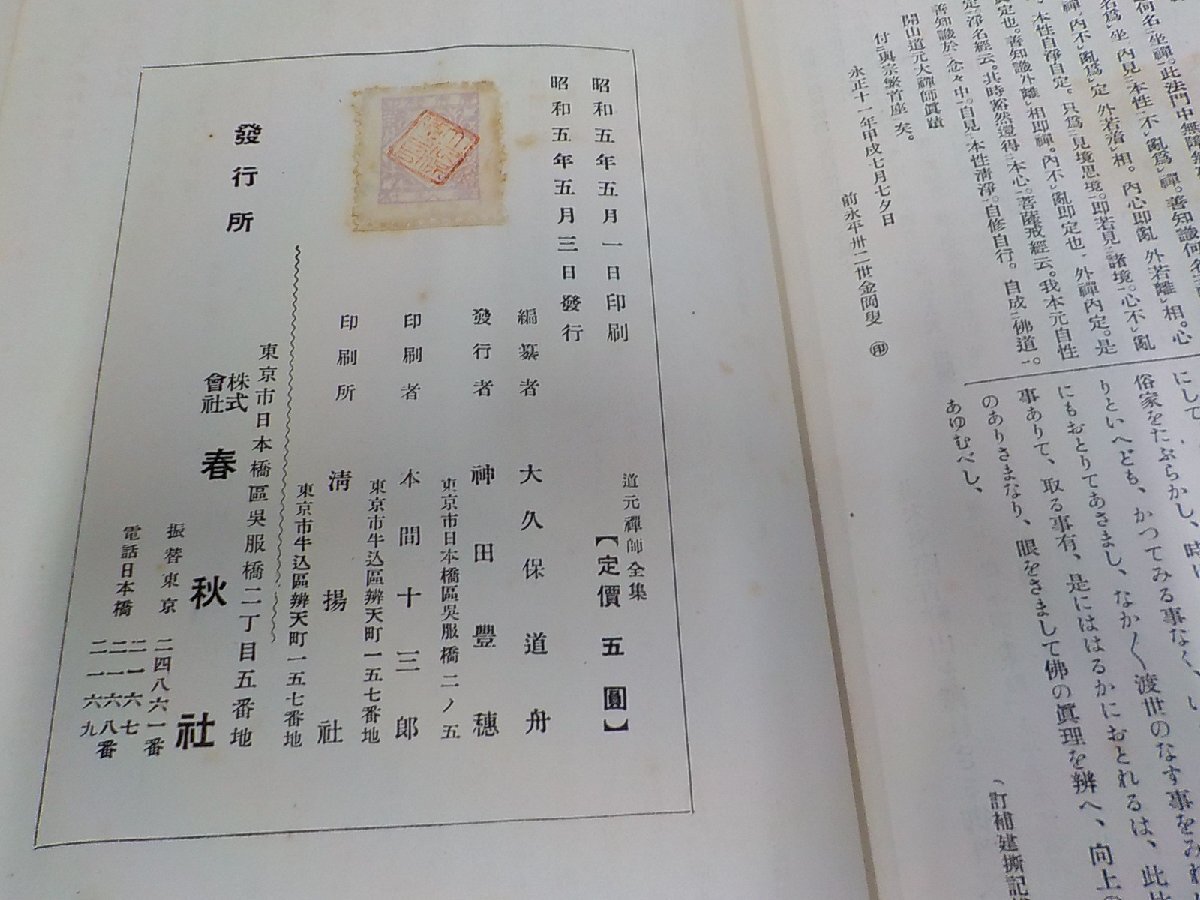 何名坐禪。此法門中無障無
名爲坐、內見本性不亂爲禪。善知識何名
、本性自淨自定。只爲見境思境。即若見諸境、心不亂
內不亂爲定、外若著相。內心即亂、外若離相。心
定也。善知識外離相即禪。內不亂即定也、外禪內定。是
定。淨名經云。其時豁然還得本心。菩薩戒經云。我本元自性
善知識於念々中。自見本性淸淨。自修自行。自成佛道。
開山道元大禪師眞蹟
付與宗繁首座矣。
永正十一年甲戌七月七夕日
前永平卅二世金岡叟 ㊞
にして
俗家をたぶらかし、時に
りといへども、かつてみる事なく、い
にもおとりてあさまし、なか〱渡世のなす事をみれ
事ありて、取る事有、是にははるかにおとれるは、此
のありさまなり、眼をさまして佛の眞理を辨へ、向上の
あゆむべし、
(訂補建撕記
昭和五年五月一日印刷
昭和五年五月三日發行
道元禪師全集
【定價 五圓】
編纂者 大久保道舟
東京市日本橋區吳服橋二ノ五
發行者 神田豐穗
東京市牛込區辨天町一五七番地
印刷者 本間十三郎
東京市牛込區辨天町一五七番地
印刷所 淸揚社
東京市日本橋區吳服橋二丁目五番地
發行所 株式會社 春秋社
振替東京 二四八六一番
電話日本橋 二一六七
二一六八番
二一六九